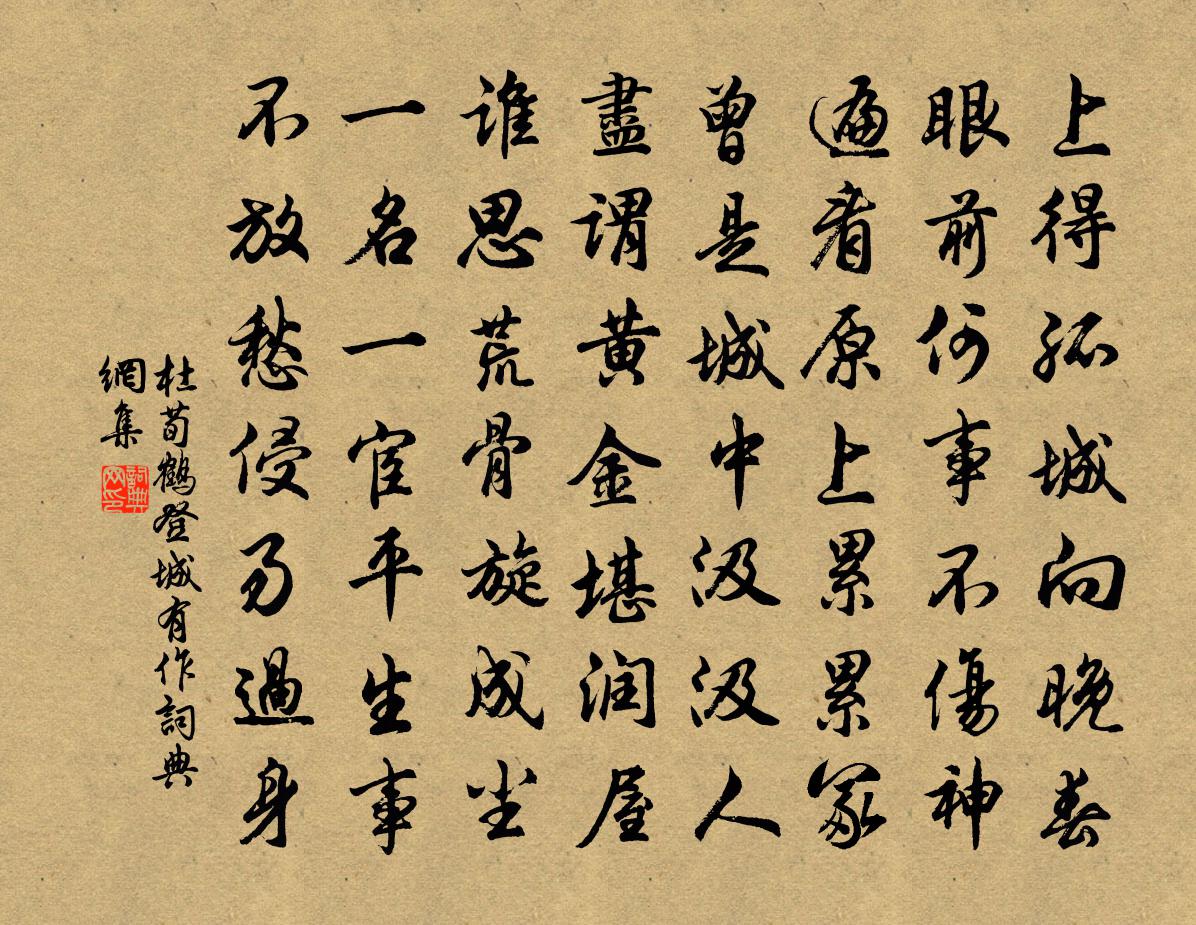 上得孤城向晚春
眼前何事不傷神
遍看原上累累冢
曾是城中汲汲人
盡谓黄金堪润屋
谁思荒骨旋成尘
一名一宦平生事
不放愁侵易過身
杜荀鶴登城有作詞典
網集
詞典網印